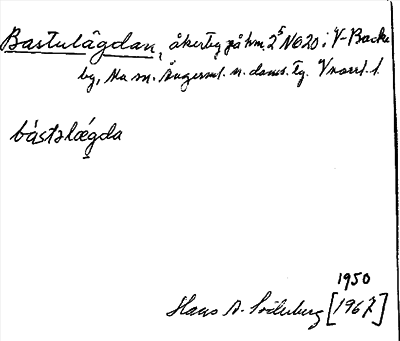 Bastulägdan, åkerteg på hm. 2⁵ N620 i V-Backe
by, Na sn. Ångerml. n. doms. tg. Vnorrl. l.
bástəlǽgda
1950
Hans A. Söderberg [1967]